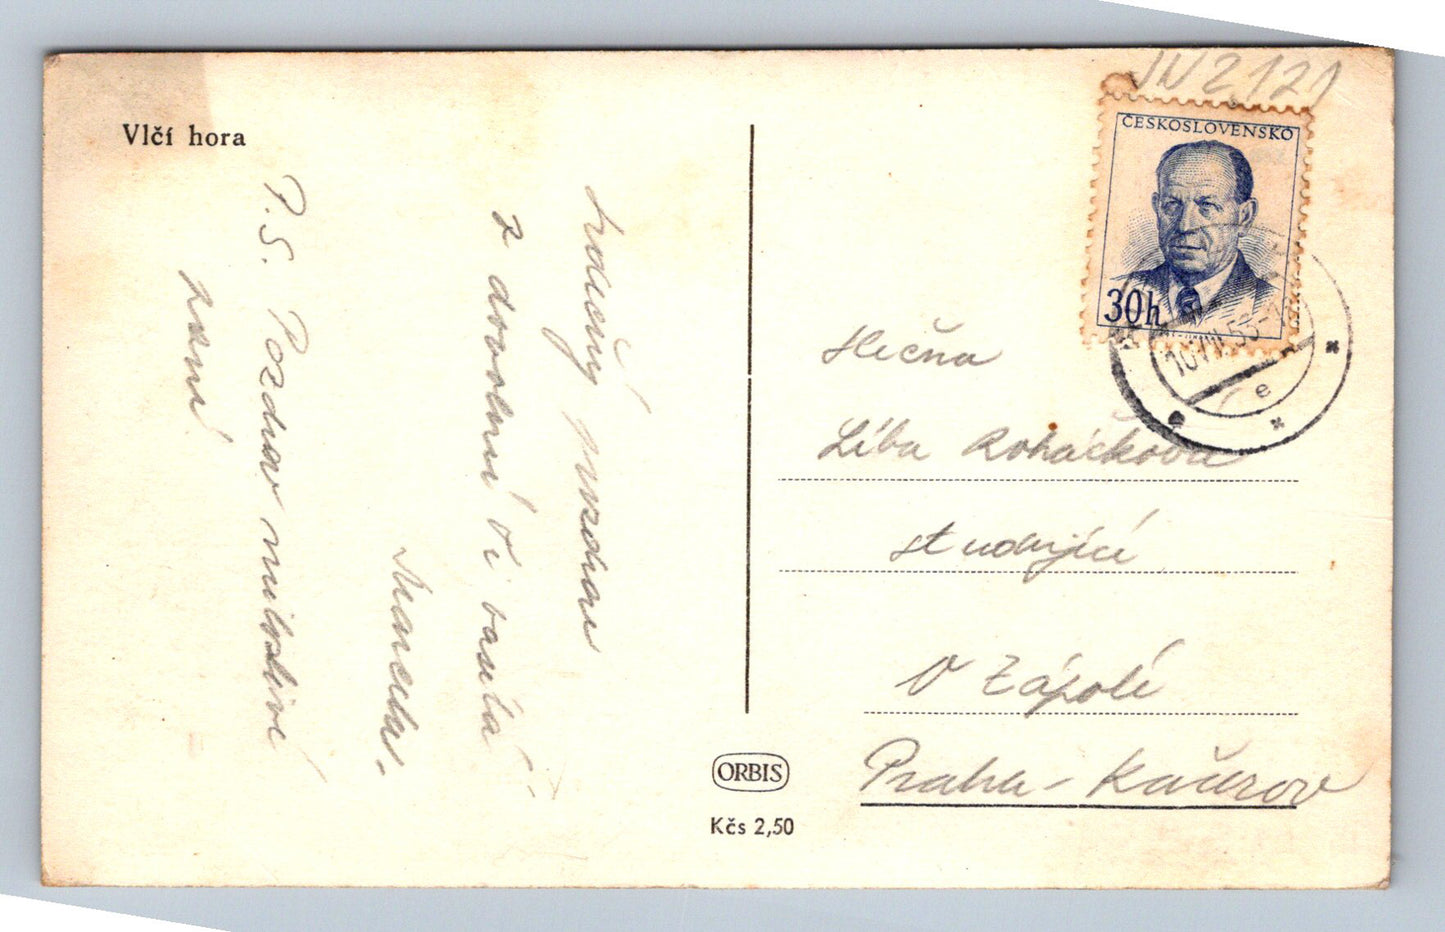 Vlčí hora
Srdečný pozdrav
z dovolení Ti zasílá
P.S. Pozdrav milostivé
paní
JN 2121
ČESKOSLOVENSKO
30h
e
Slečna
Líba Roháčková
studující
V Zápolí
Praha - Kačerov
ORBIS
Kčs 2,50